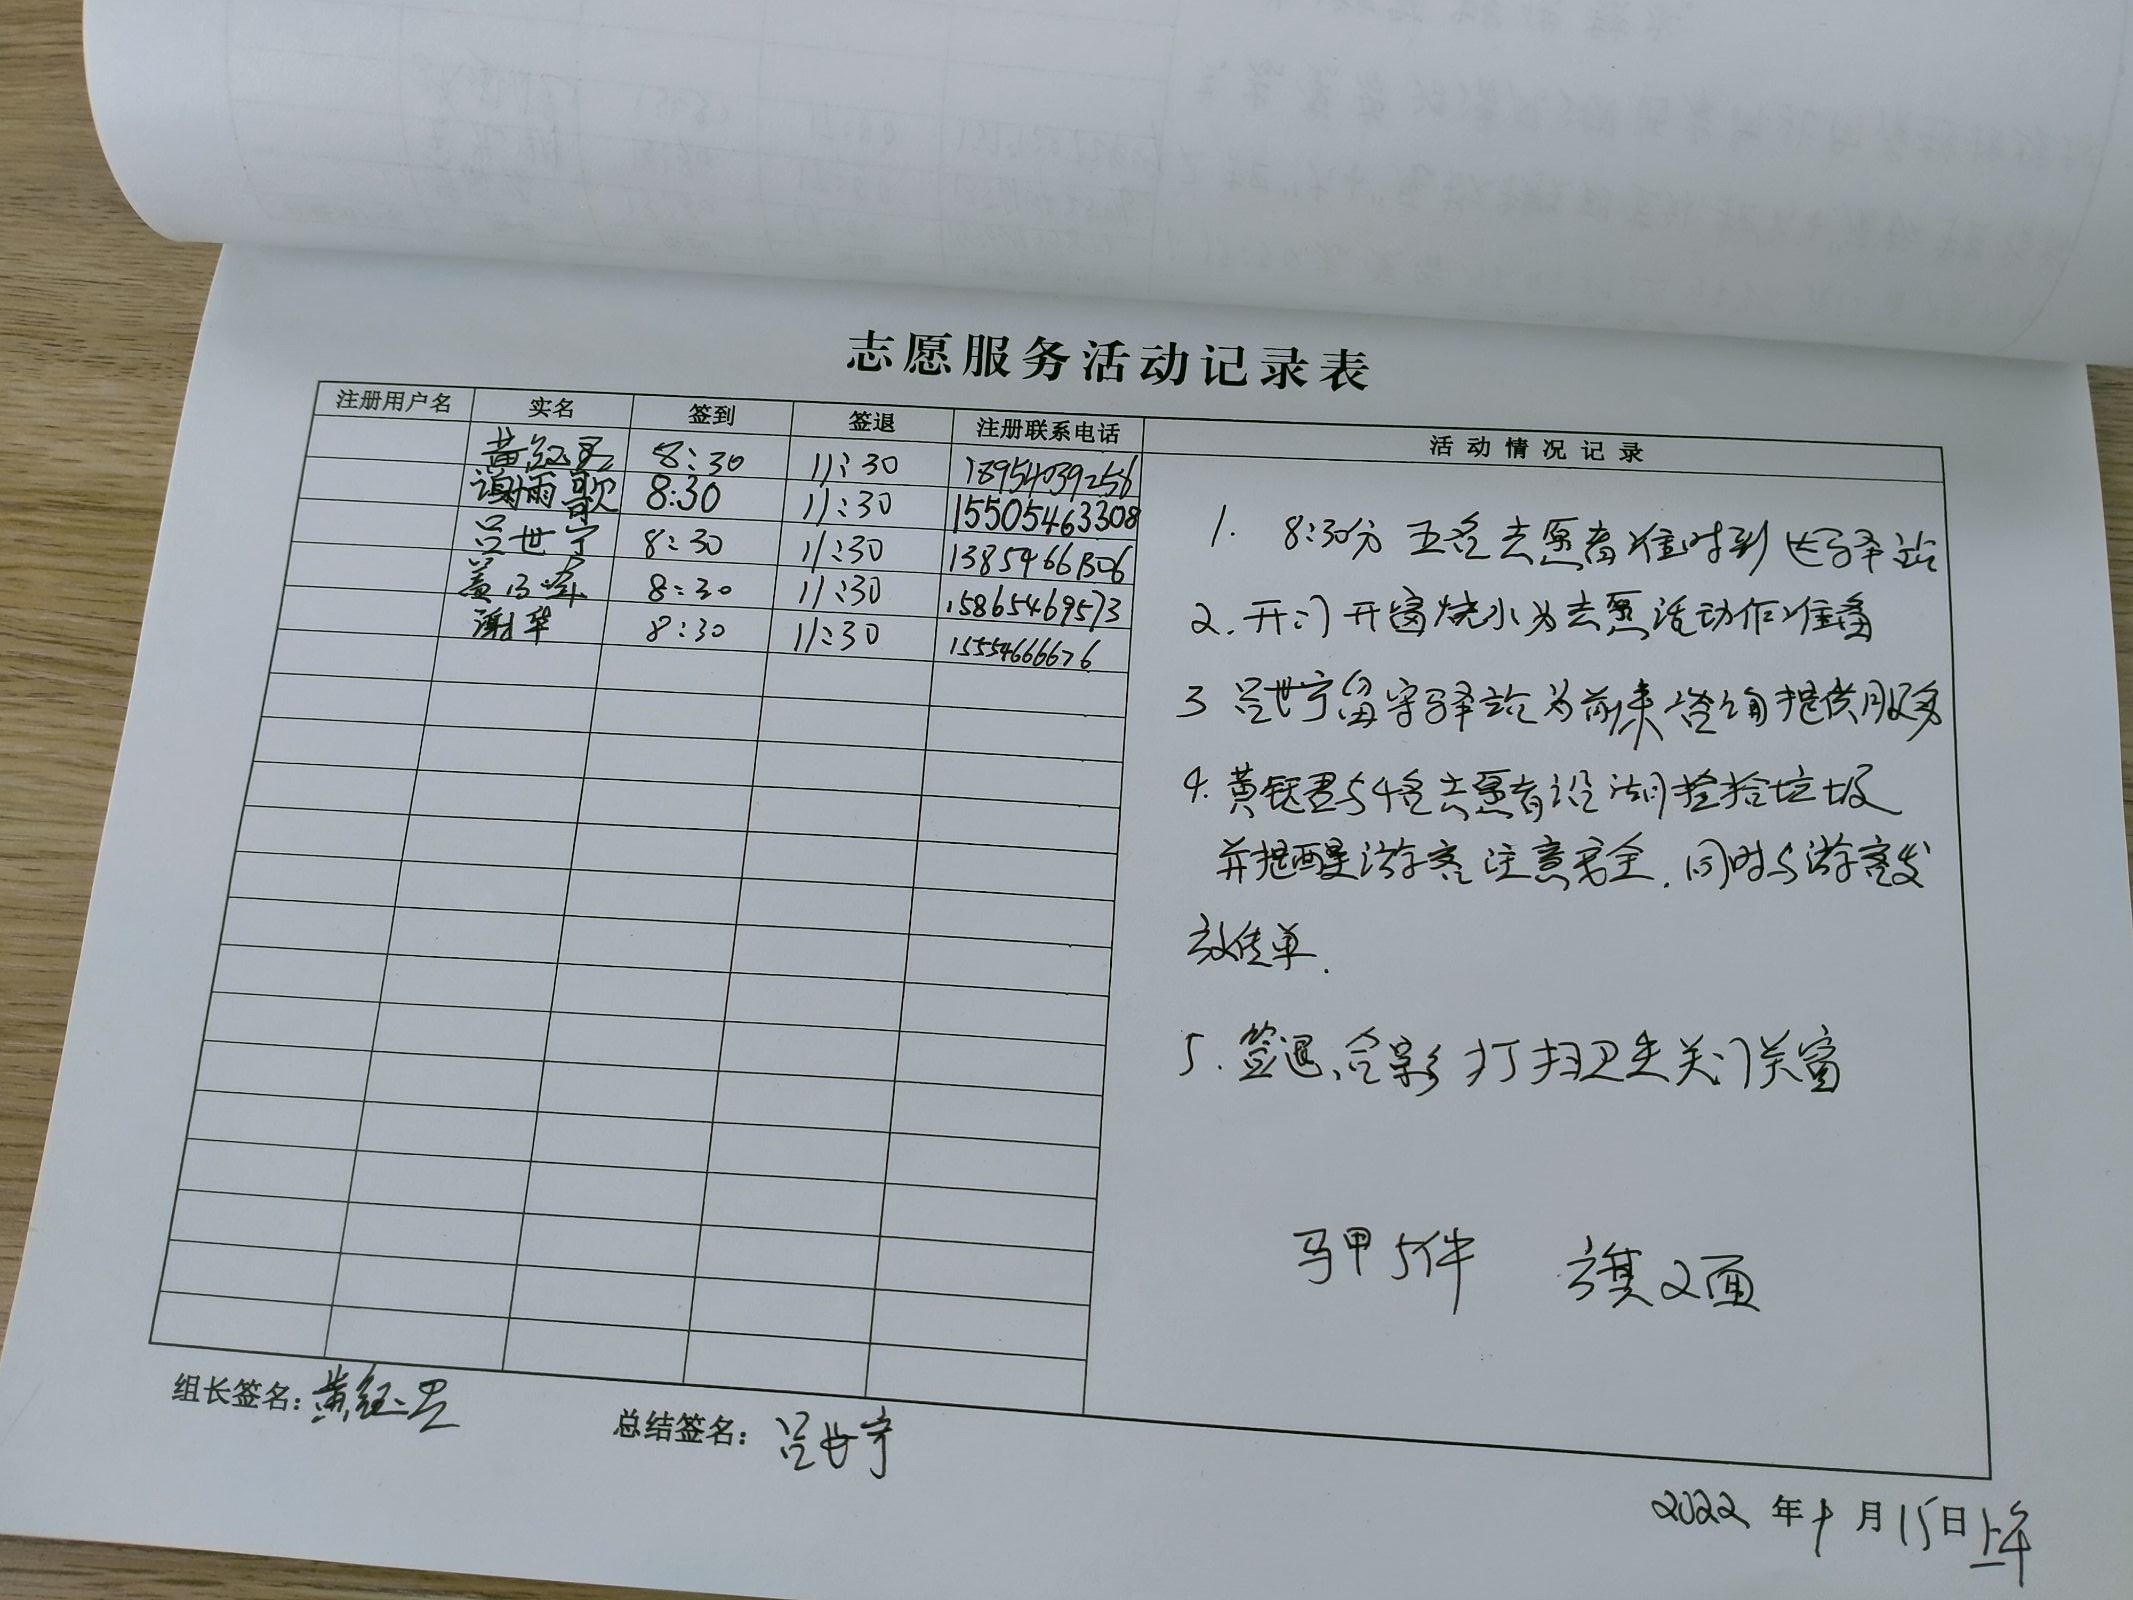 志愿服务活动记录表
注册用户名 实名 签到 签退 注册联系电话 活动情况记录
8:30 11:30 18954039256
谢雨歌 8:30 11:30 15505463308
吕世宁 8:30 11:30 13854661306
黄 8:30 11:30 15865469573
谢华 8:30 11:30 15554666676
1. 8:30分 五名志愿者准时到达驿站
2. 开门开窗烧水为志愿活动作准备
3 吕世宁留守驿站为前来咨询提供服务
4. 黄钰君与4名志愿者沿湖捡拾垃圾
并提醒游客注意安全.同时与游客发
放传单.
5. 签退、合影 打扫卫生关门关窗
马甲5件 旗2面
组长签名: 黄钰君 总结签名: 吕世宁
2022年 月15日上午